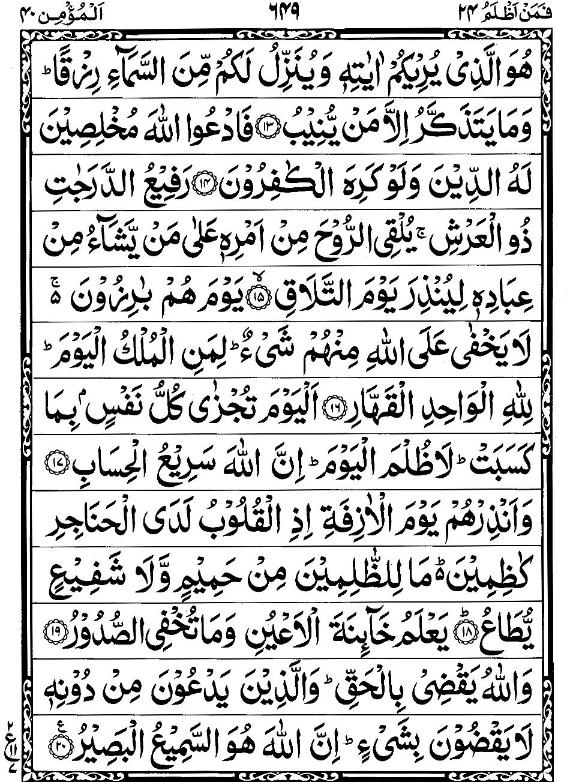 فَمَنْ اَظْلَمُ ٢٤ ٦٤٩ اَلْمُؤْمِن ٤٠
هُوَ الَّذِىْ يُرِيْكُمْ اٰيٰتِهٖ وَيُنَزِّلُ لَكُمْ مِّنَ السَّمَآءِ رِزْقًا ؕ
وَمَا يَتَذَكَّرُ اِلَّا مَنْ يُّنِيْبُ ﴿١٣﴾ فَادْعُوا اللّٰهَ مُخْلِصِيْنَ
لَهُ الدِّيْنَ وَلَوْ كَرِهَ الْكٰفِرُوْنَ ﴿١٤﴾ رَفِيْعُ الدَّرَجٰتِ
ذُو الْعَرْشِ ۚ يُلْقِى الرُّوْحَ مِنْ اَمْرِهٖ عَلٰى مَنْ يَّشَآءُ مِنْ
عِبَادِهٖ لِيُنْذِرَ يَوْمَ التَّلَاقِ ۙ﴿١٥﴾ يَوْمَ هُمْ بٰرِزُوْنَ ۚ ٥
لَا يَخْفٰى عَلَى اللّٰهِ مِنْهُمْ شَىْءٌ ؕ لِمَنِ الْمُلْكُ الْيَوْمَ ؕ
لِلّٰهِ الْوَاحِدِ الْقَهَّارِ ﴿١٦﴾ اَلْيَوْمَ تُجْزٰى كُلُّ نَفْسٍۢ بِمَا
كَسَبَتْ ؕ لَا ظُلْمَ الْيَوْمَ ؕ اِنَّ اللّٰهَ سَرِيْعُ الْحِسَابِ ﴿١٧﴾
وَاَنْذِرْهُمْ يَوْمَ الْاٰزِفَةِ اِذِ الْقُلُوْبُ لَدَى الْحَنَاجِرِ
كٰظِمِيْنَ ؕ۬ مَا لِلظّٰلِمِيْنَ مِنْ حَمِيْمٍ وَّلَا شَفِيْعٍ
يُّطَاعُ ؕ﴿١٨﴾ يَعْلَمُ خَآئِنَةَ الْاَعْيُنِ وَمَا تُخْفِى الصُّدُوْرُ ﴿١٩﴾
وَاللّٰهُ يَقْضِىْ بِالْحَقِّ ؕ وَالَّذِيْنَ يَدْعُوْنَ مِنْ دُوْنِهٖ
لَا يَقْضُوْنَ بِشَىْءٍ ؕ اِنَّ اللّٰهَ هُوَ السَّمِيْعُ الْبَصِيْرُ ﴿٢٠﴾ ع
٢ ع ١١ ٧